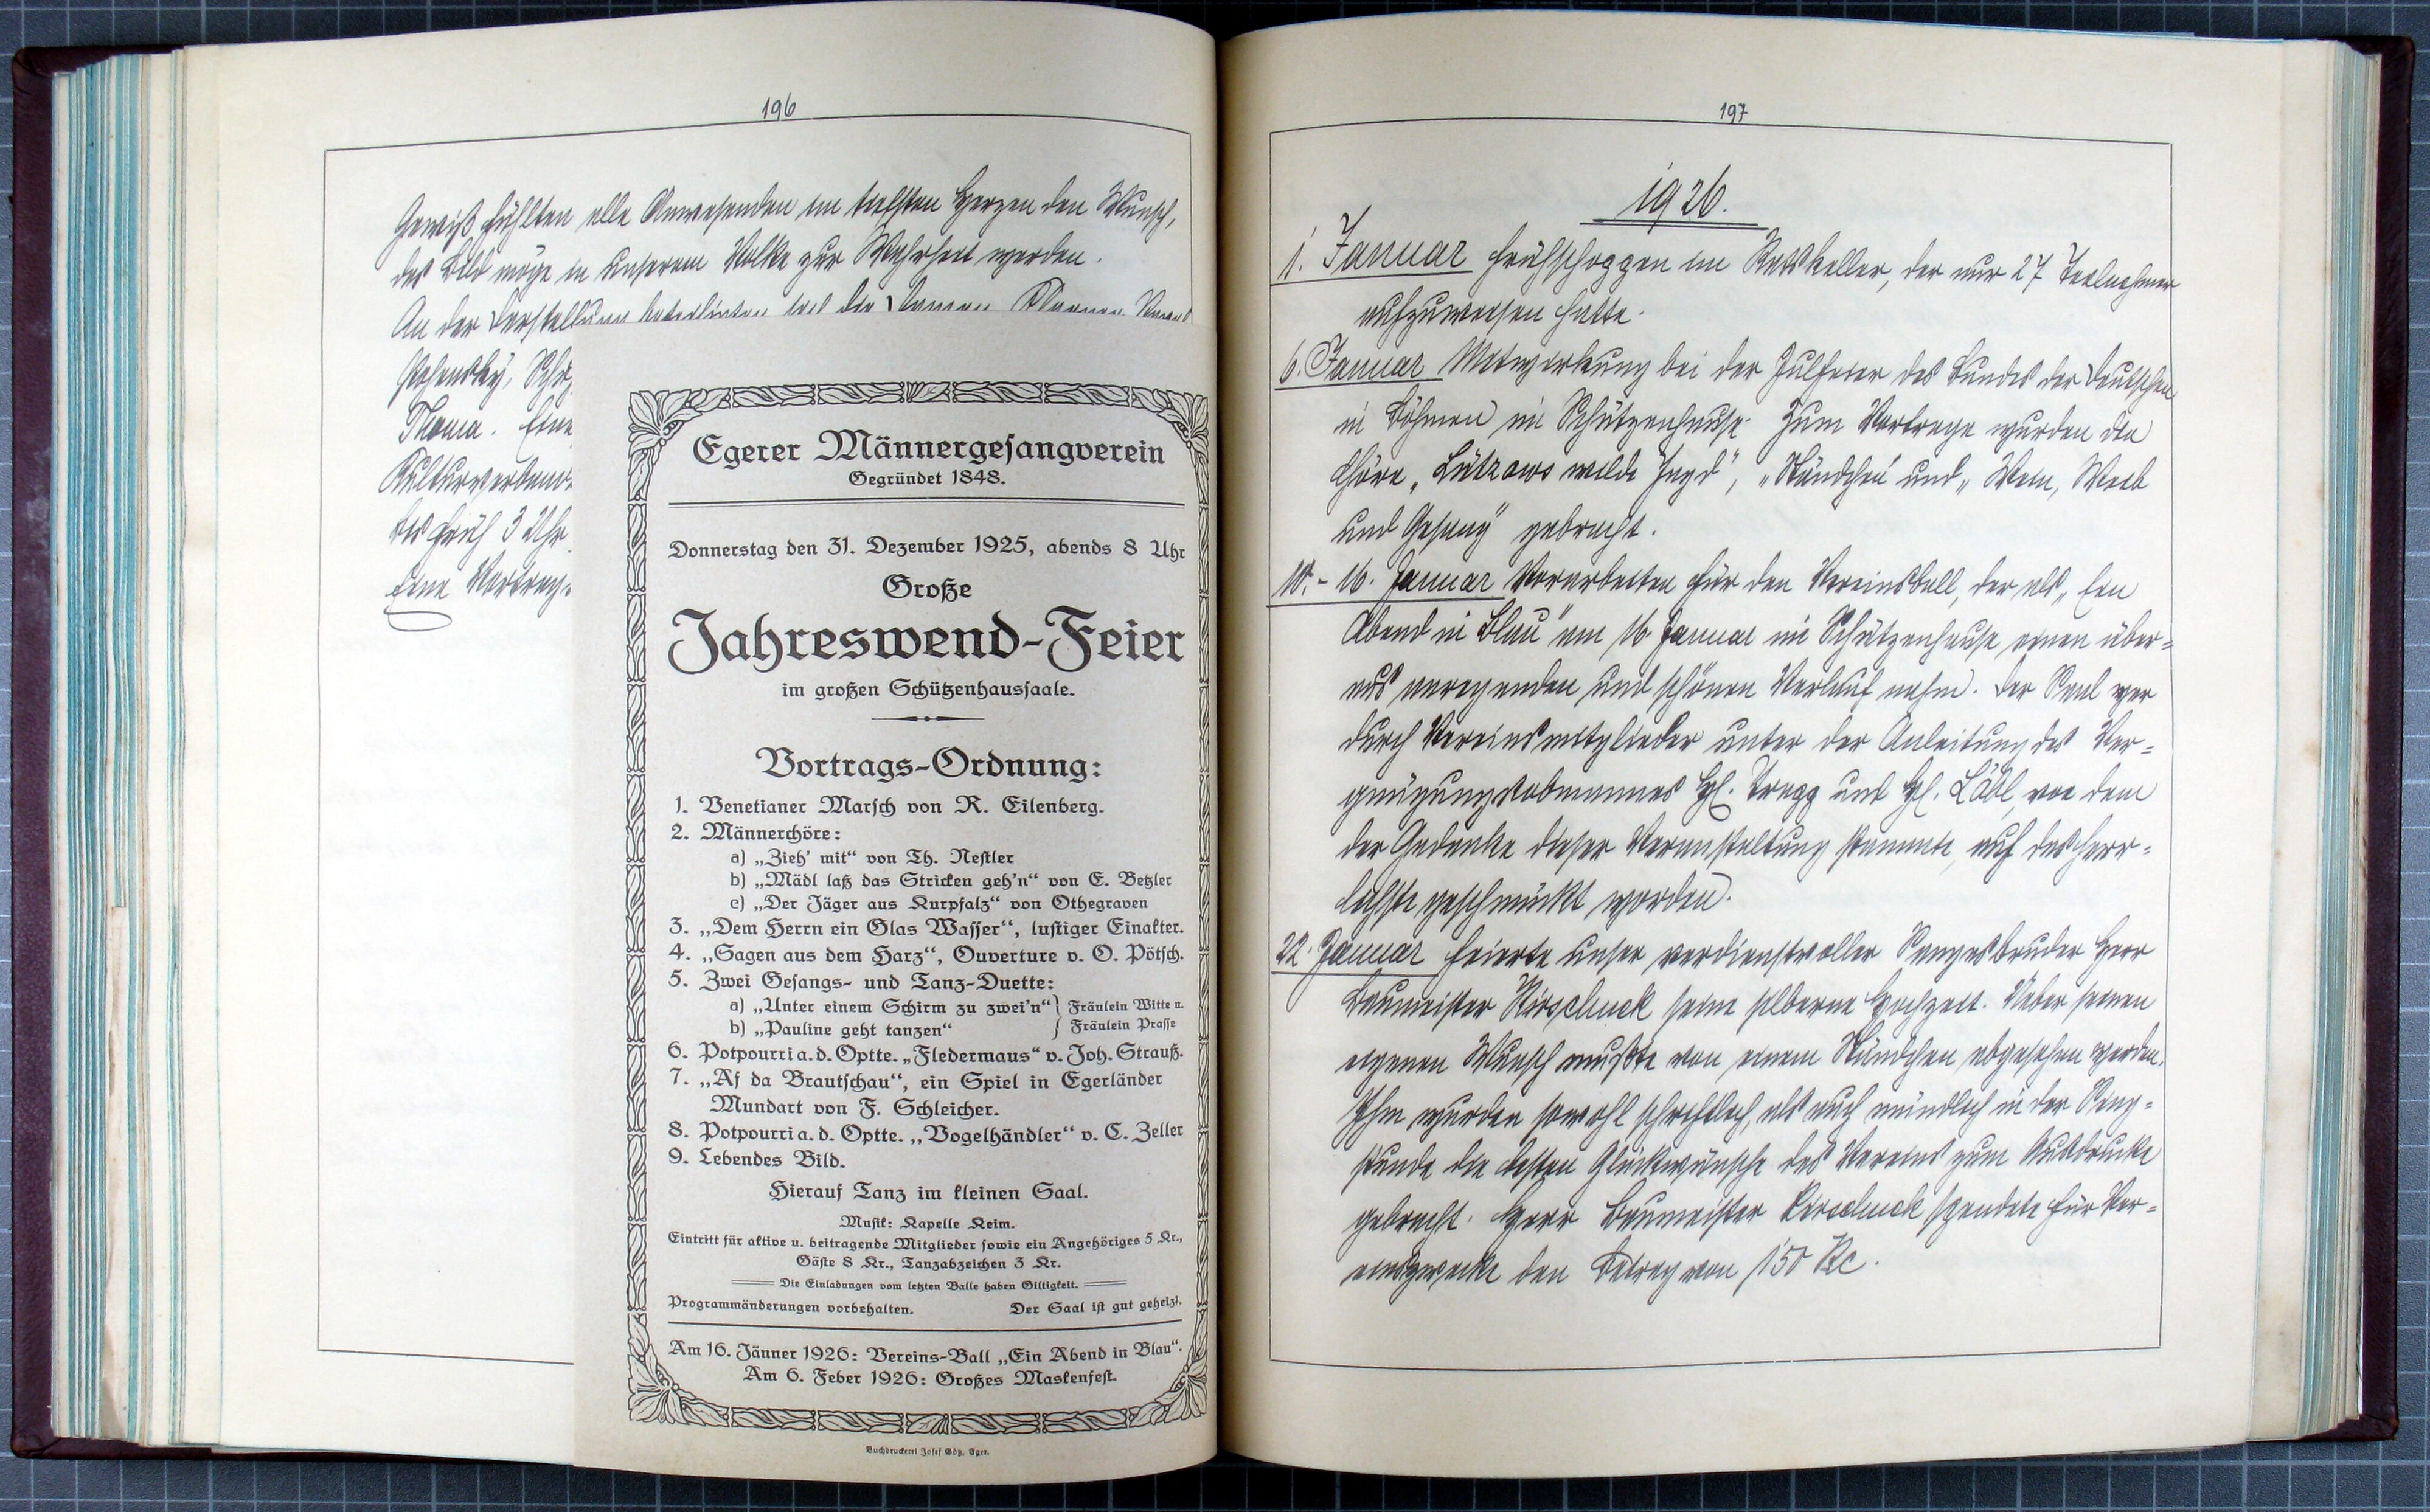 196
Gewiß fühlten alle Anwesenden im tiefsten Herzen den Wunsch,
das Bild möge in unserem Volke zur Wahrheit werden.
An der Darstellung beteiligten sich die Damen
Thoma. Eine
bis früh 3 Uhr
Eine Vortrags
Egerer Männergesangverein
Gegründet 1848.
Donnerstag den 31. Dezember 1925, abends 8 Uhr
Große
Jahreswend-Feier
im großen Schützenhaussaale.
Vortrags-Ordnung:
1. Venetianer Marsch von R. Eilenberg.
2. Männerchöre:
a) „Zieh' mit“ von Th. Nestler
b) „Mädl laß das Stricken geh'n“ von E. Betzler
c) „Der Jäger aus Kurpfalz“ von Othegraven
3. „Dem Herrn ein Glas Wasser“, lustiger Einakter.
4. „Sagen aus dem Harz“, Ouverture v. O. Pötsch.
5. Zwei Gesangs- und Tanz-Duette:
a) „Unter einem Schirm zu zwei'n“ } Fräulein Witte u.
b) „Pauline geht tanzen“ } Fräulein Prasse
6. Potpourri a. d. Optte. „Fledermaus“ v. Joh. Strauß.
7. „Af da Brautschau“, ein Spiel in Egerländer
Mundart von F. Schleicher.
8. Potpourri a. d. Optte. „Vogelhändler“ v. C. Zeller
9. Lebendes Bild.
Hierauf Tanz im kleinen Saal.
Musik: Kapelle Keim.
Eintritt für aktive u. beitragende Mitglieder sowie ein Angehöriges 5 Kr.,
Gäste 8 Kr., Tanzabzeichen 3 Kr.
Die Einladungen vom letzten Balle haben Giltigkeit.
Programmänderungen vorbehalten. Der Saal ist gut geheizt.
Am 16. Jänner 1926: Vereins-Ball „Ein Abend in Blau“.
Am 6. Feber 1926: Großes Maskenfest.
Buchdruckerei Josef Götz, Eger.
197
1926.
1. Januar Frühschoppen im Ratskeller, der nur 27 Teilnehmer
aufzuweisen hatte.
6. Januar Mitwirkung bei der Julfeier des Bundes der Deutschen
in Böhmen im Schützenhause. Zum Vortrage wurden die
Chöre „Lützows wilde Jagd“, „Ständchen“ und „Wein, Weib
und Gesang“ gebracht.
10.-16. Januar Vorarbeiten für den Vereinsball, der als „Ein
Abend in Blau“ am 16. Januar im Schützenhause einen über=
aus anregenden und schönen Verlauf nahm. Der Saal war
durch Vereinsmitglieder unter der Anleitung des Ver=
gnügungsobmannes H. Trapp und H. Löbl, von dem
der Gedanke dieser Veranstaltung stammte, auf das herr=
lichste geschmückt worden.
22. Januar feierte unser verdienstvoller Sangesbruder Herr
Baumeister Kirschneck seine silberne Hochzeit. Ueber seinen
eigenen Wunsch mußte von einem Ständchen abgesehen werden.
Ihm wurden sowohl schriftlich, als auch mündlich in der Sing=
stunde die besten Glückwünsche des Vereins zum Ausdrucke
gebracht. Herr Baumeister Kirschneck spendete für Ver=
einszwecke den Betrag von 150 Kc.